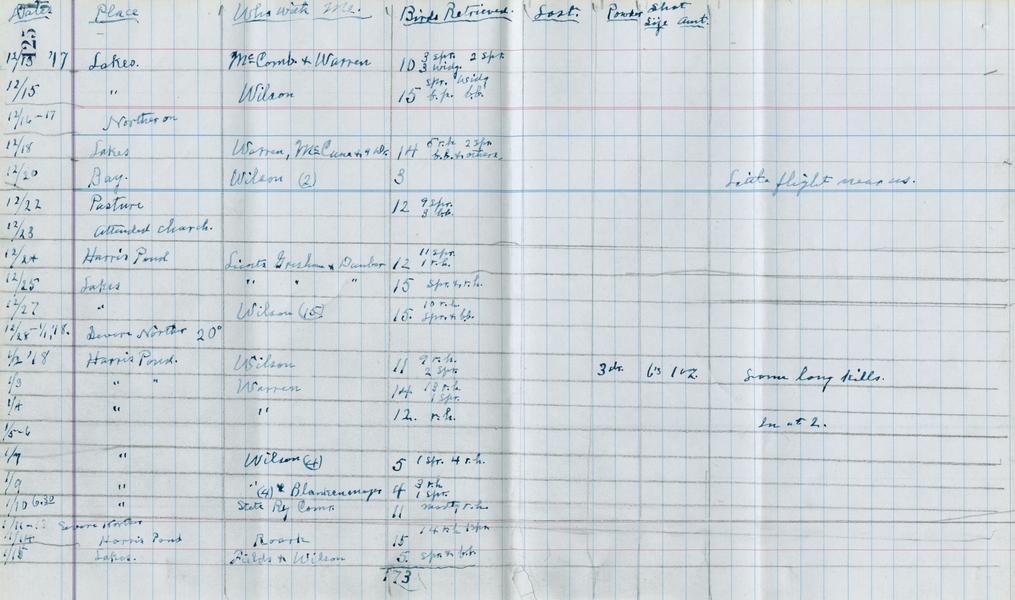 Dates Place Who with me. Birds Retrieved. Lost. Powder Shot Size Amt.
125
12/13 '17 Lakes. McComb & Warren 10 3 spr. 2 spr. 3 widg.
12/15 " Wilson 15 spr. widg b.p. b.b.
12/16-17 Norther on
12/18 Lakes Warren, McCune & 14 5 r.h. 2 spr. b.b. & others
12/20 Bay. Wilson (2) 3 Little flight near us.
12/22 Pasture 12 9 spr. 3 b.b.
12/23 Attended church.
12/24 Harris Pond Lieuts Gresham & Dunbar 12 11 spr. 1 r.h.
12/25 Lakes " " " 15 spr. & r.h.
12/27 " Wilson (15) 15. 10 r.h. spr. & b.b.
12/28-1/1,'18. Severe Norther 20°
1/2 '18 Harris Pond. Wilson 11 9 r.h. 2 spr. 3 dr. 6's 1 oz. Some long kills.
1/3 " " Warren 14 13 r.h 1 spr.
1/4 " " 12. r.h. In at 2.
1/5-6
1/7 " Wilson (4) 5 1 spr. 4 r.h.
1/9 " " (4) & 4 3 r.h. 1 spr.
1/10 6:30 " State Rg Comr. 11 mostly r.h
Severe Norther
1/14 Harris Pond Roark 15 14 r.h. 1 spr.
1/15 Lakes. Fields & Wilson 5. spr. & b.b.
173